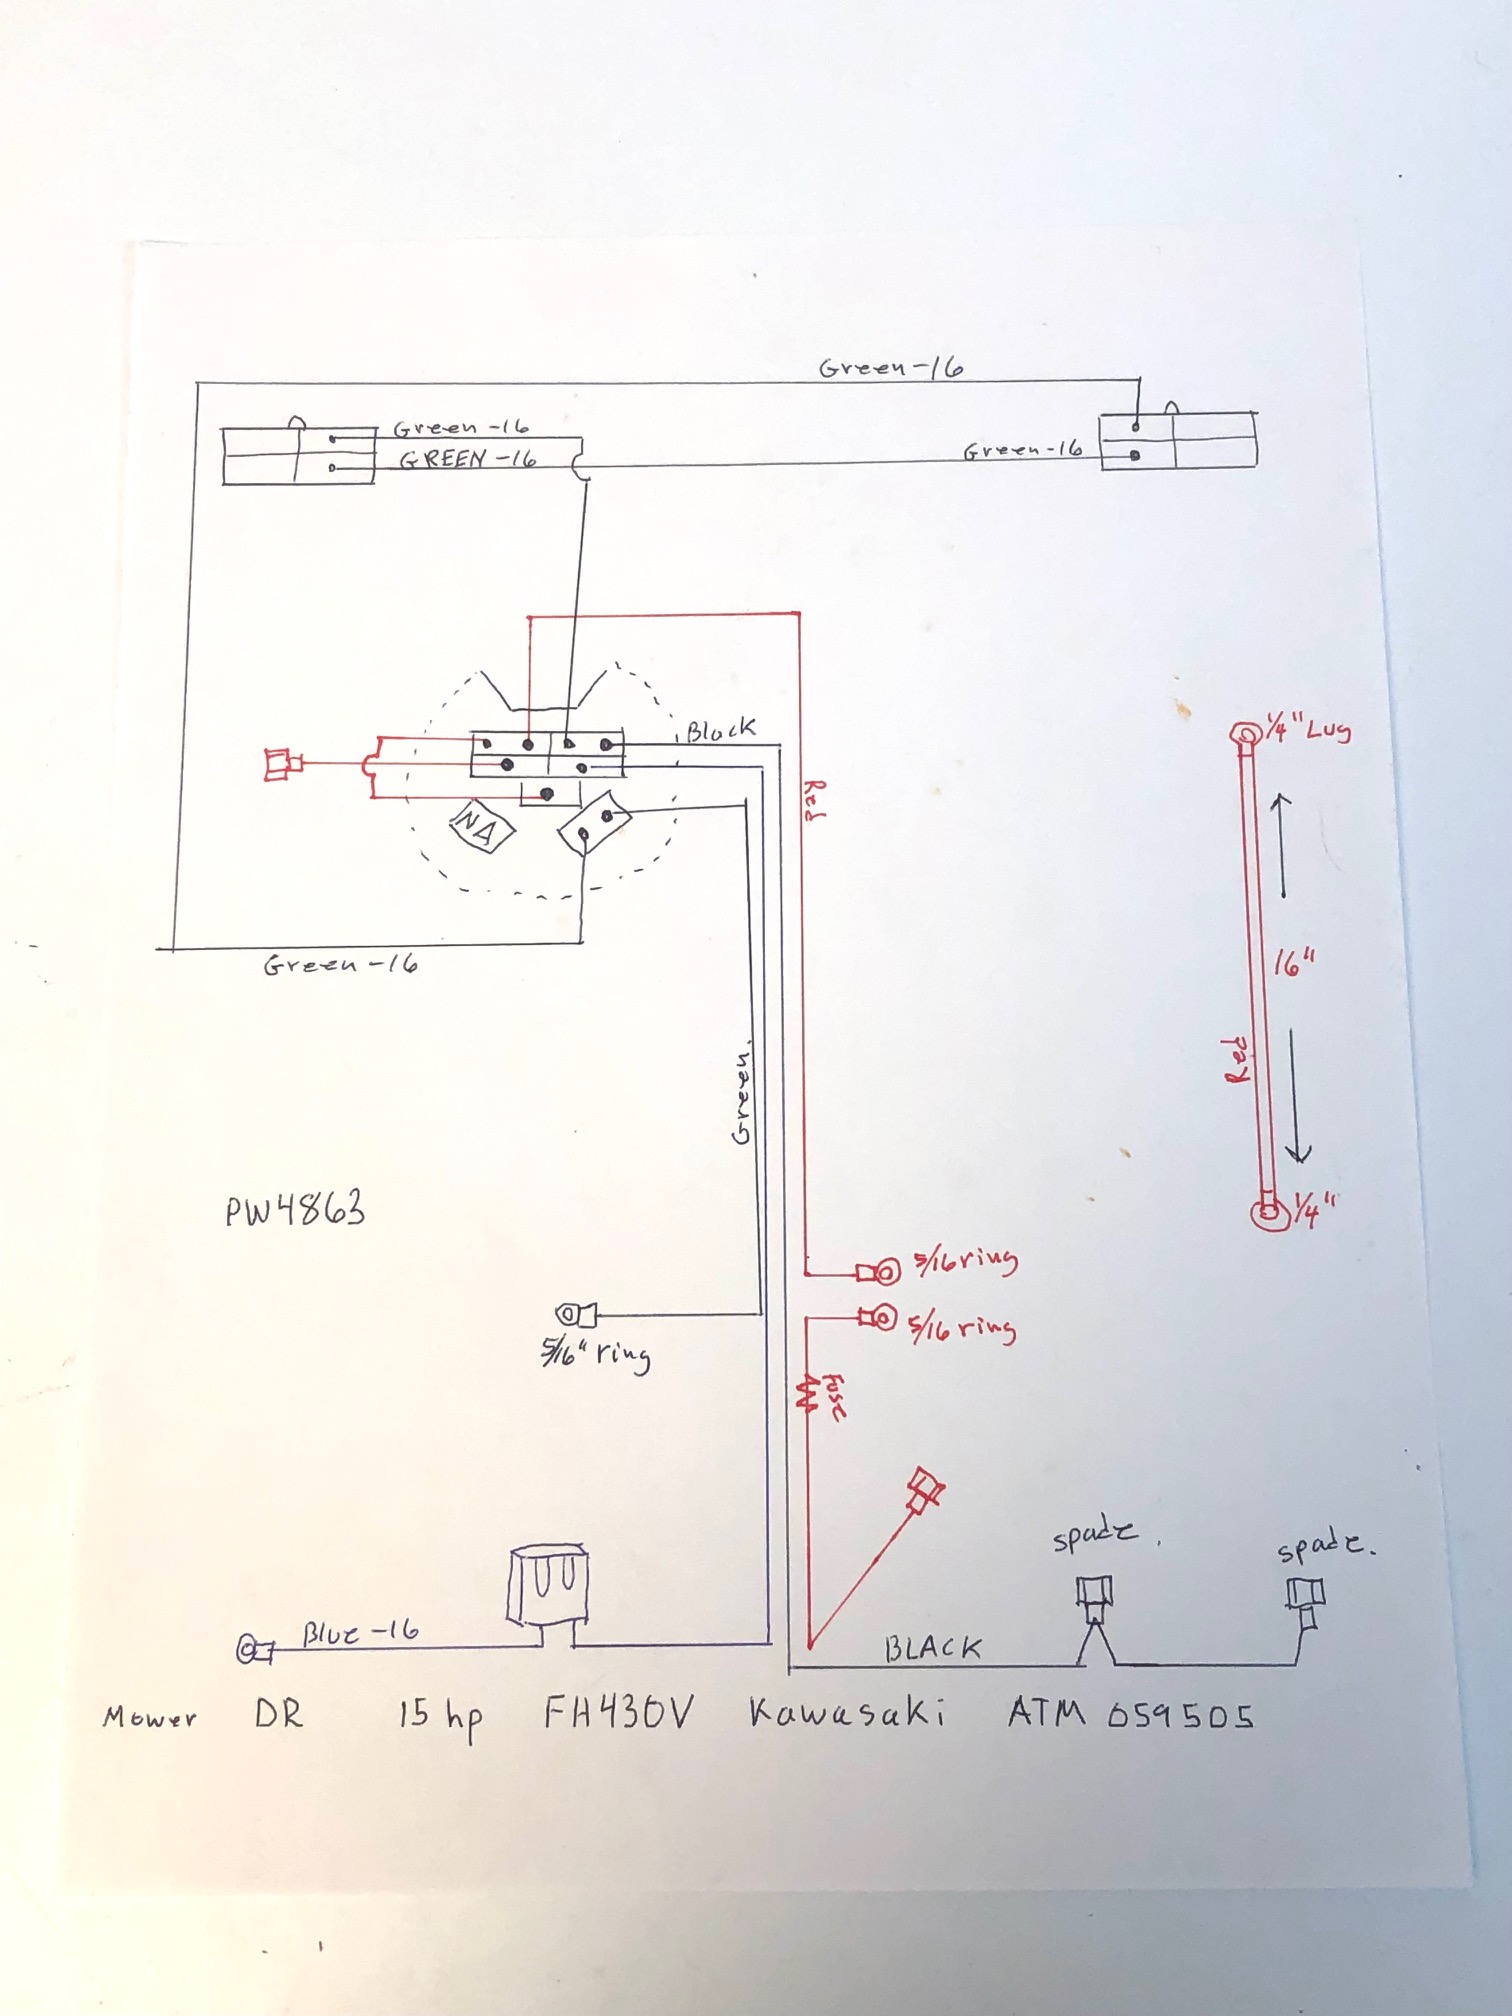 Green-16
Green-16
GREEN-16
Green-16
Black
Red
NA
Green-16
1/4" Lug
16"
Red
1/4"
Green.
PW4863
5/16 ring
5/16 ring
5/16" ring
Fuse
spade.
spade.
Blue-16
BLACK
Mower DR 15 hp FH430V Kawasaki ATM 059505